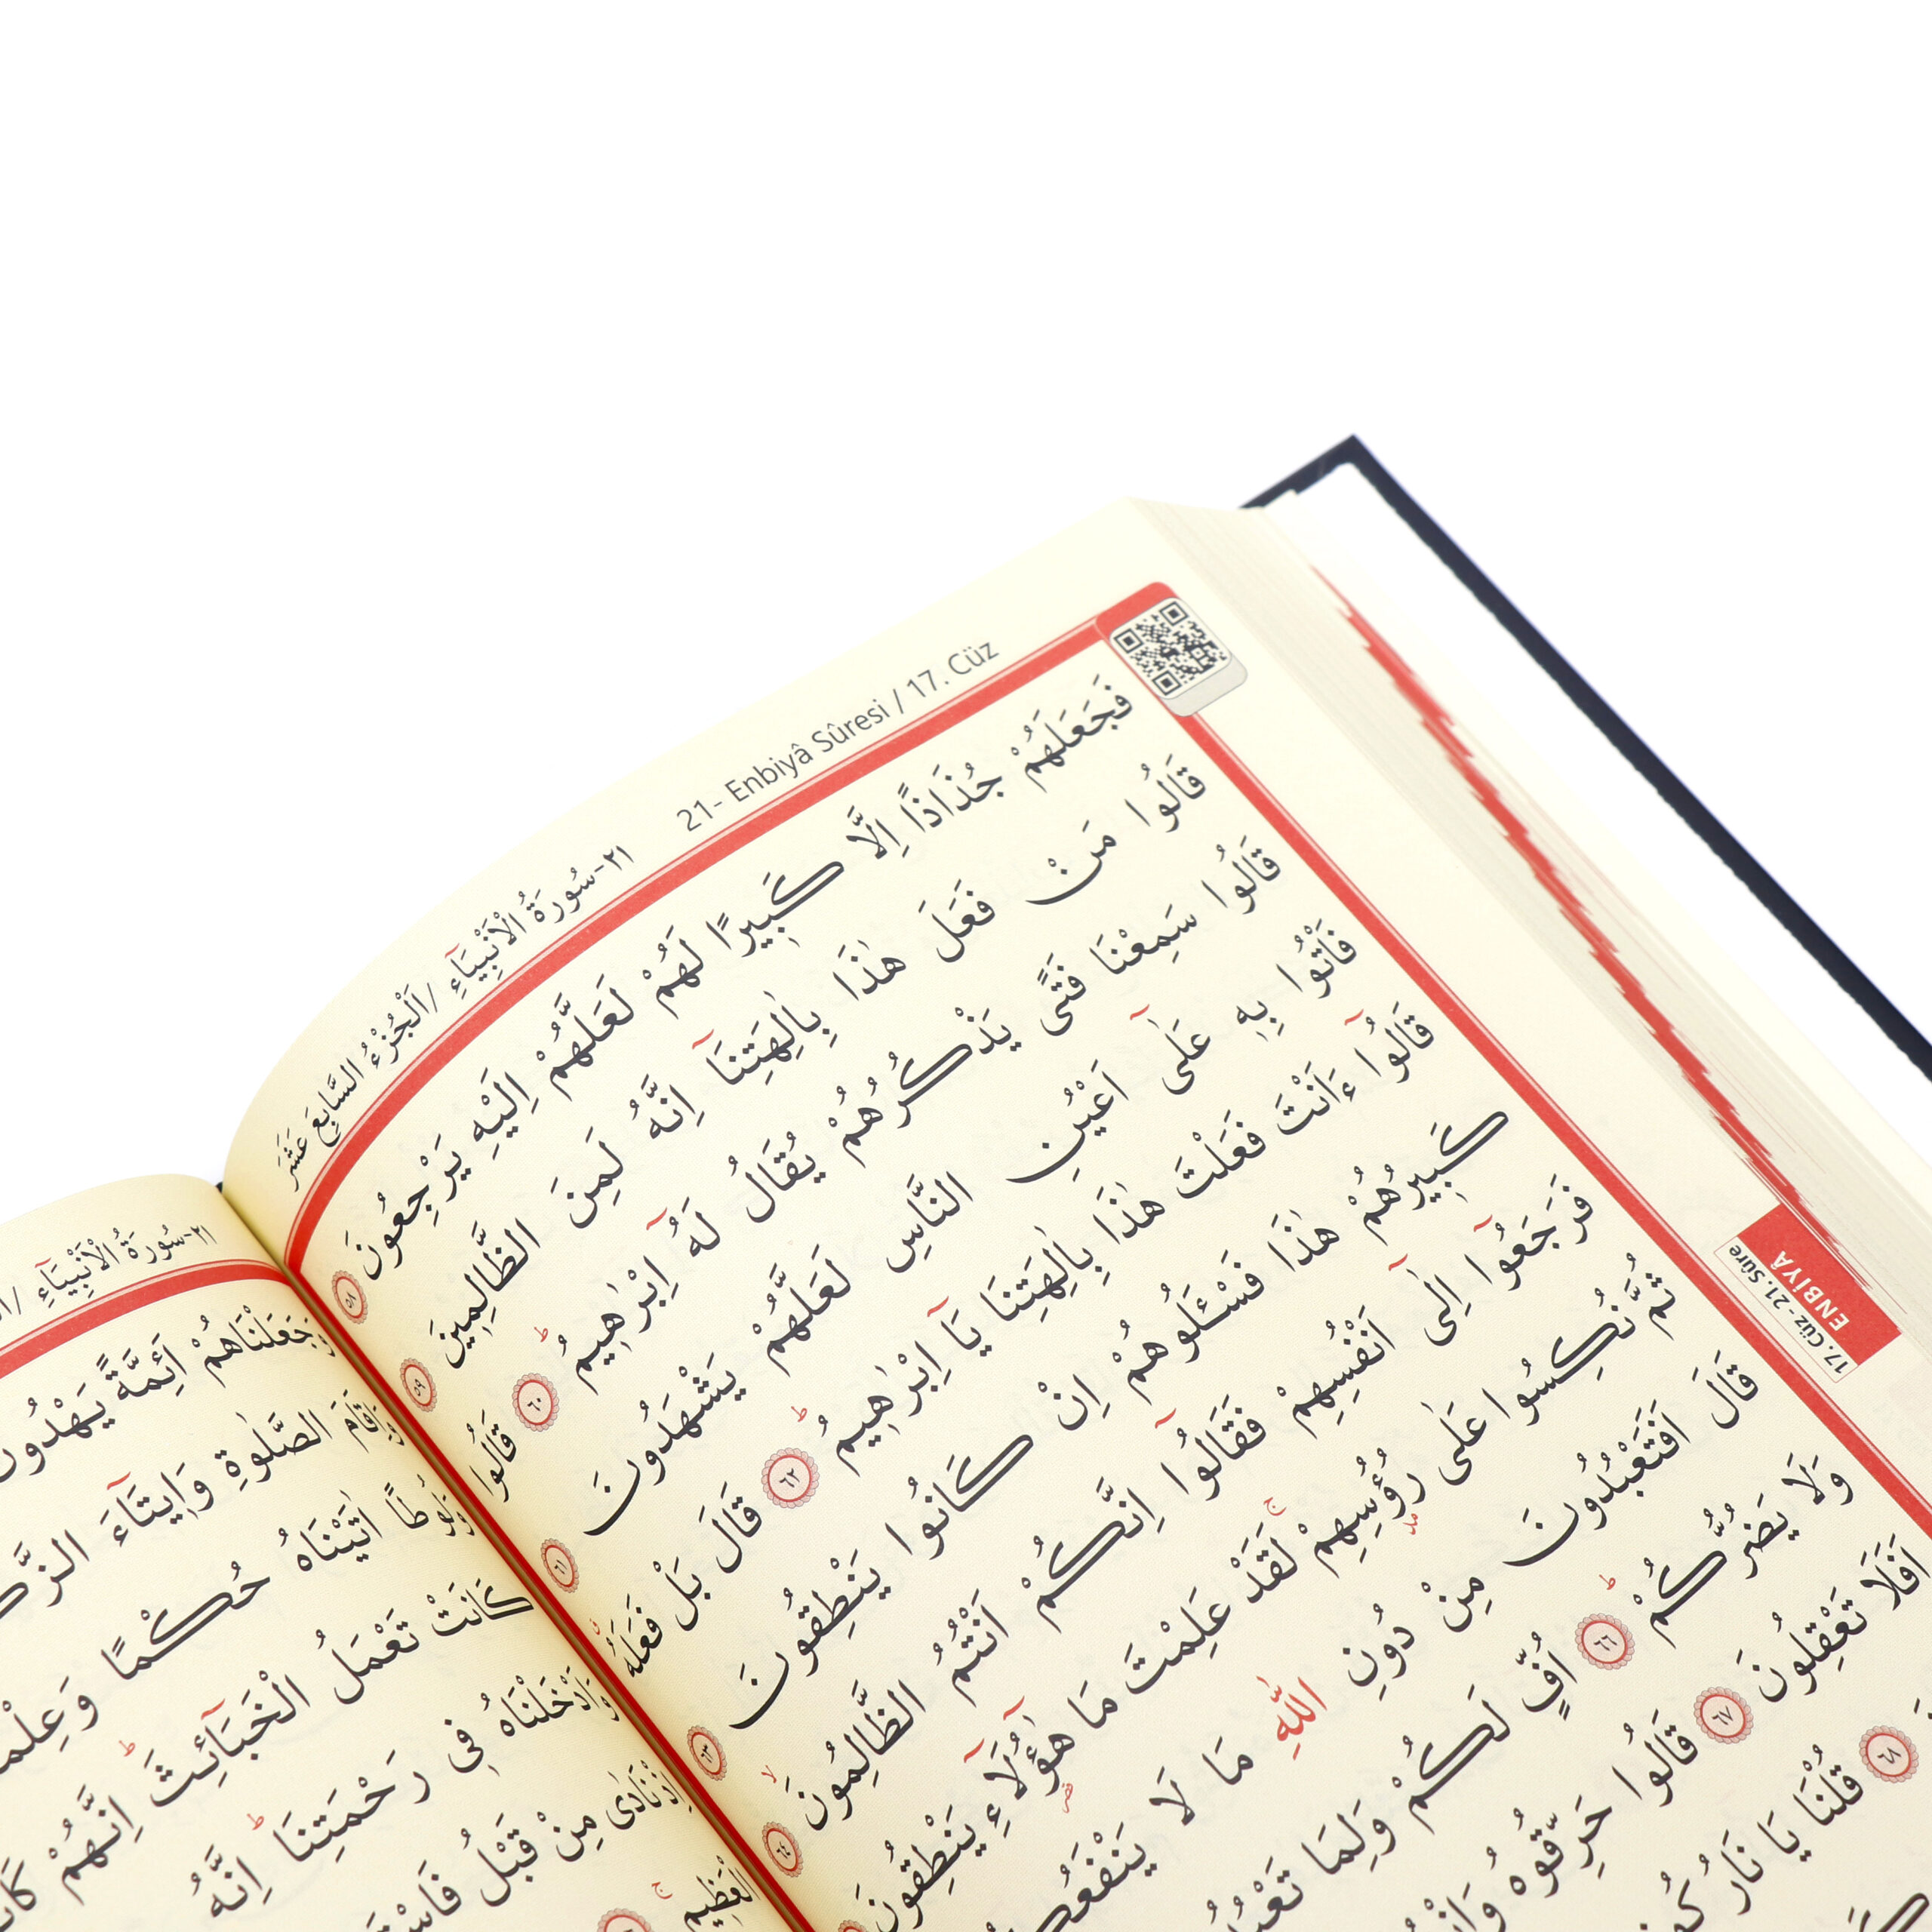 21- Enbiyâ Sûresi / 17. Cüz
٢١-سُورَةُ الْاَنْبِيَآءِ / اَلْجُزْءُ السَّابِعَ عَشَرَ
فَجَعَلَهُمْ جُذَاذًا اِلَّا كَبٖيرًا لَهُمْ لَعَلَّهُمْ اِلَيْهِ يَرْجِعُونَ ٥٨
قَالُوا مَنْ فَعَلَ هٰذَا بِاٰلِهَتِنَآ اِنَّهُ لَمِنَ الظَّالِمٖينَ ٥٩
قَالُوا سَمِعْنَا فَتًى يَذْكُرُهُمْ يُقَالُ لَهُٓ اِبْرٰهٖيمُ ط ٦٠ قَالُوا
فَاْتُوا بِهٖ عَلٰٓى اَعْيُنِ النَّاسِ لَعَلَّهُمْ يَشْهَدُونَ ٦١
قَالُوٓا ءَاَنْتَ فَعَلْتَ هٰذَا بِاٰلِهَتِنَا يَآ اِبْرٰهٖيمُ ط ٦٢ قَالَ بَلْ فَعَلَهُ
كَبٖيرُهُمْ هٰذَا فَسْـَٔلُوهُمْ اِنْ كَانُوا يَنْطِقُونَ ٦٣
فَرَجَعُوٓا اِلٰٓى اَنْفُسِهِمْ فَقَالُوٓا اِنَّكُمْ اَنْتُمُ الظَّالِمُونَ لا ٦٤
ثُمَّ نُكِسُوا عَلٰى رُؤُسِهِمْ ج لَقَدْ عَلِمْتَ مَا هٰٓؤُلَٓاءِ يَنْطِقُونَ
قَالَ اَفَتَعْبُدُونَ مِنْ دُونِ اللّٰهِ مَا لَا
وَلَا يَضُرُّكُمْ ط ٦٦ اُفٍّ لَكُمْ وَلِمَا
اَفَلَا تَعْقِلُونَ ٦٧ قَالُوا حَرِّقُوهُ
٦٨ قُلْنَا يَا نَارُ
17. Cüz - 21. Sûre
ENBİYÂ
٢١-سُورَةُ الْاَنْبِيَآءِ /
وَجَعَلْنَاهُمْ اَئِمَّةً يَهْدُونَ
وَاِقَامَ الصَّلٰوةِ وَاٖيتَآءَ
وَلُوطًا اٰتَيْنَاهُ حُكْمًا وَعِلْمًا
كَانَتْ تَعْمَلُ الْخَبَآئِثَ ط اِنَّهُمْ
وَاَدْخَلْنَاهُ فٖى رَحْمَتِنَا ط اِنَّهُ
اِذْ نَادٰى مِنْ قَبْلُ
الْعَظٖيمِ ج